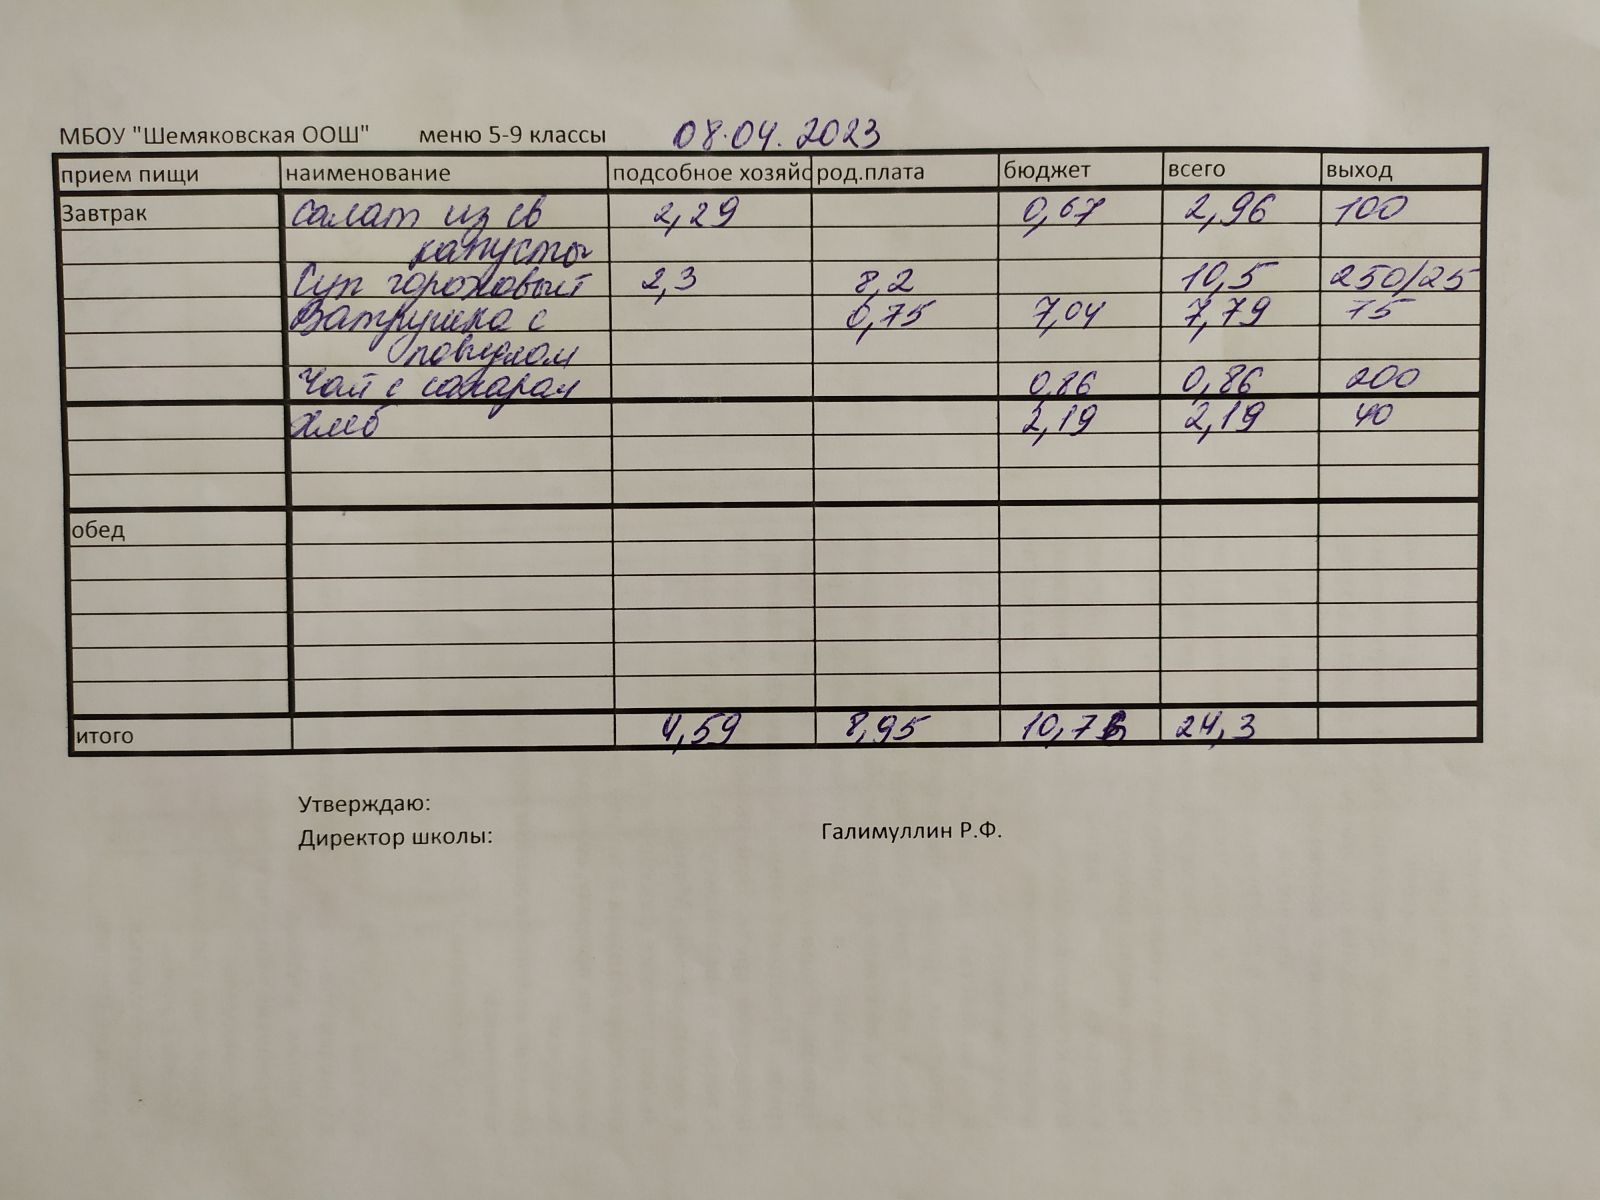 МБОУ "Шемяковская ООШ" меню 5-9 классы 08.04.2023
прием пищи наименование подсобное хозяйс род.плата бюджет всего выход
Завтрак Салат из св 2,29 0,67 2,96 100
капусты
Суп гороховый 2,3 8,2 10,5 250/25
Ватрушка с 0,75 7,04 7,79 75
повидлом
Чай с сахаром 0,86 0,86 200
Хлеб 2,19 2,19 40
обед
итого 4,59 8,95 10,76 24,3
Утверждаю:
Директор школы: Галимуллин Р.Ф.